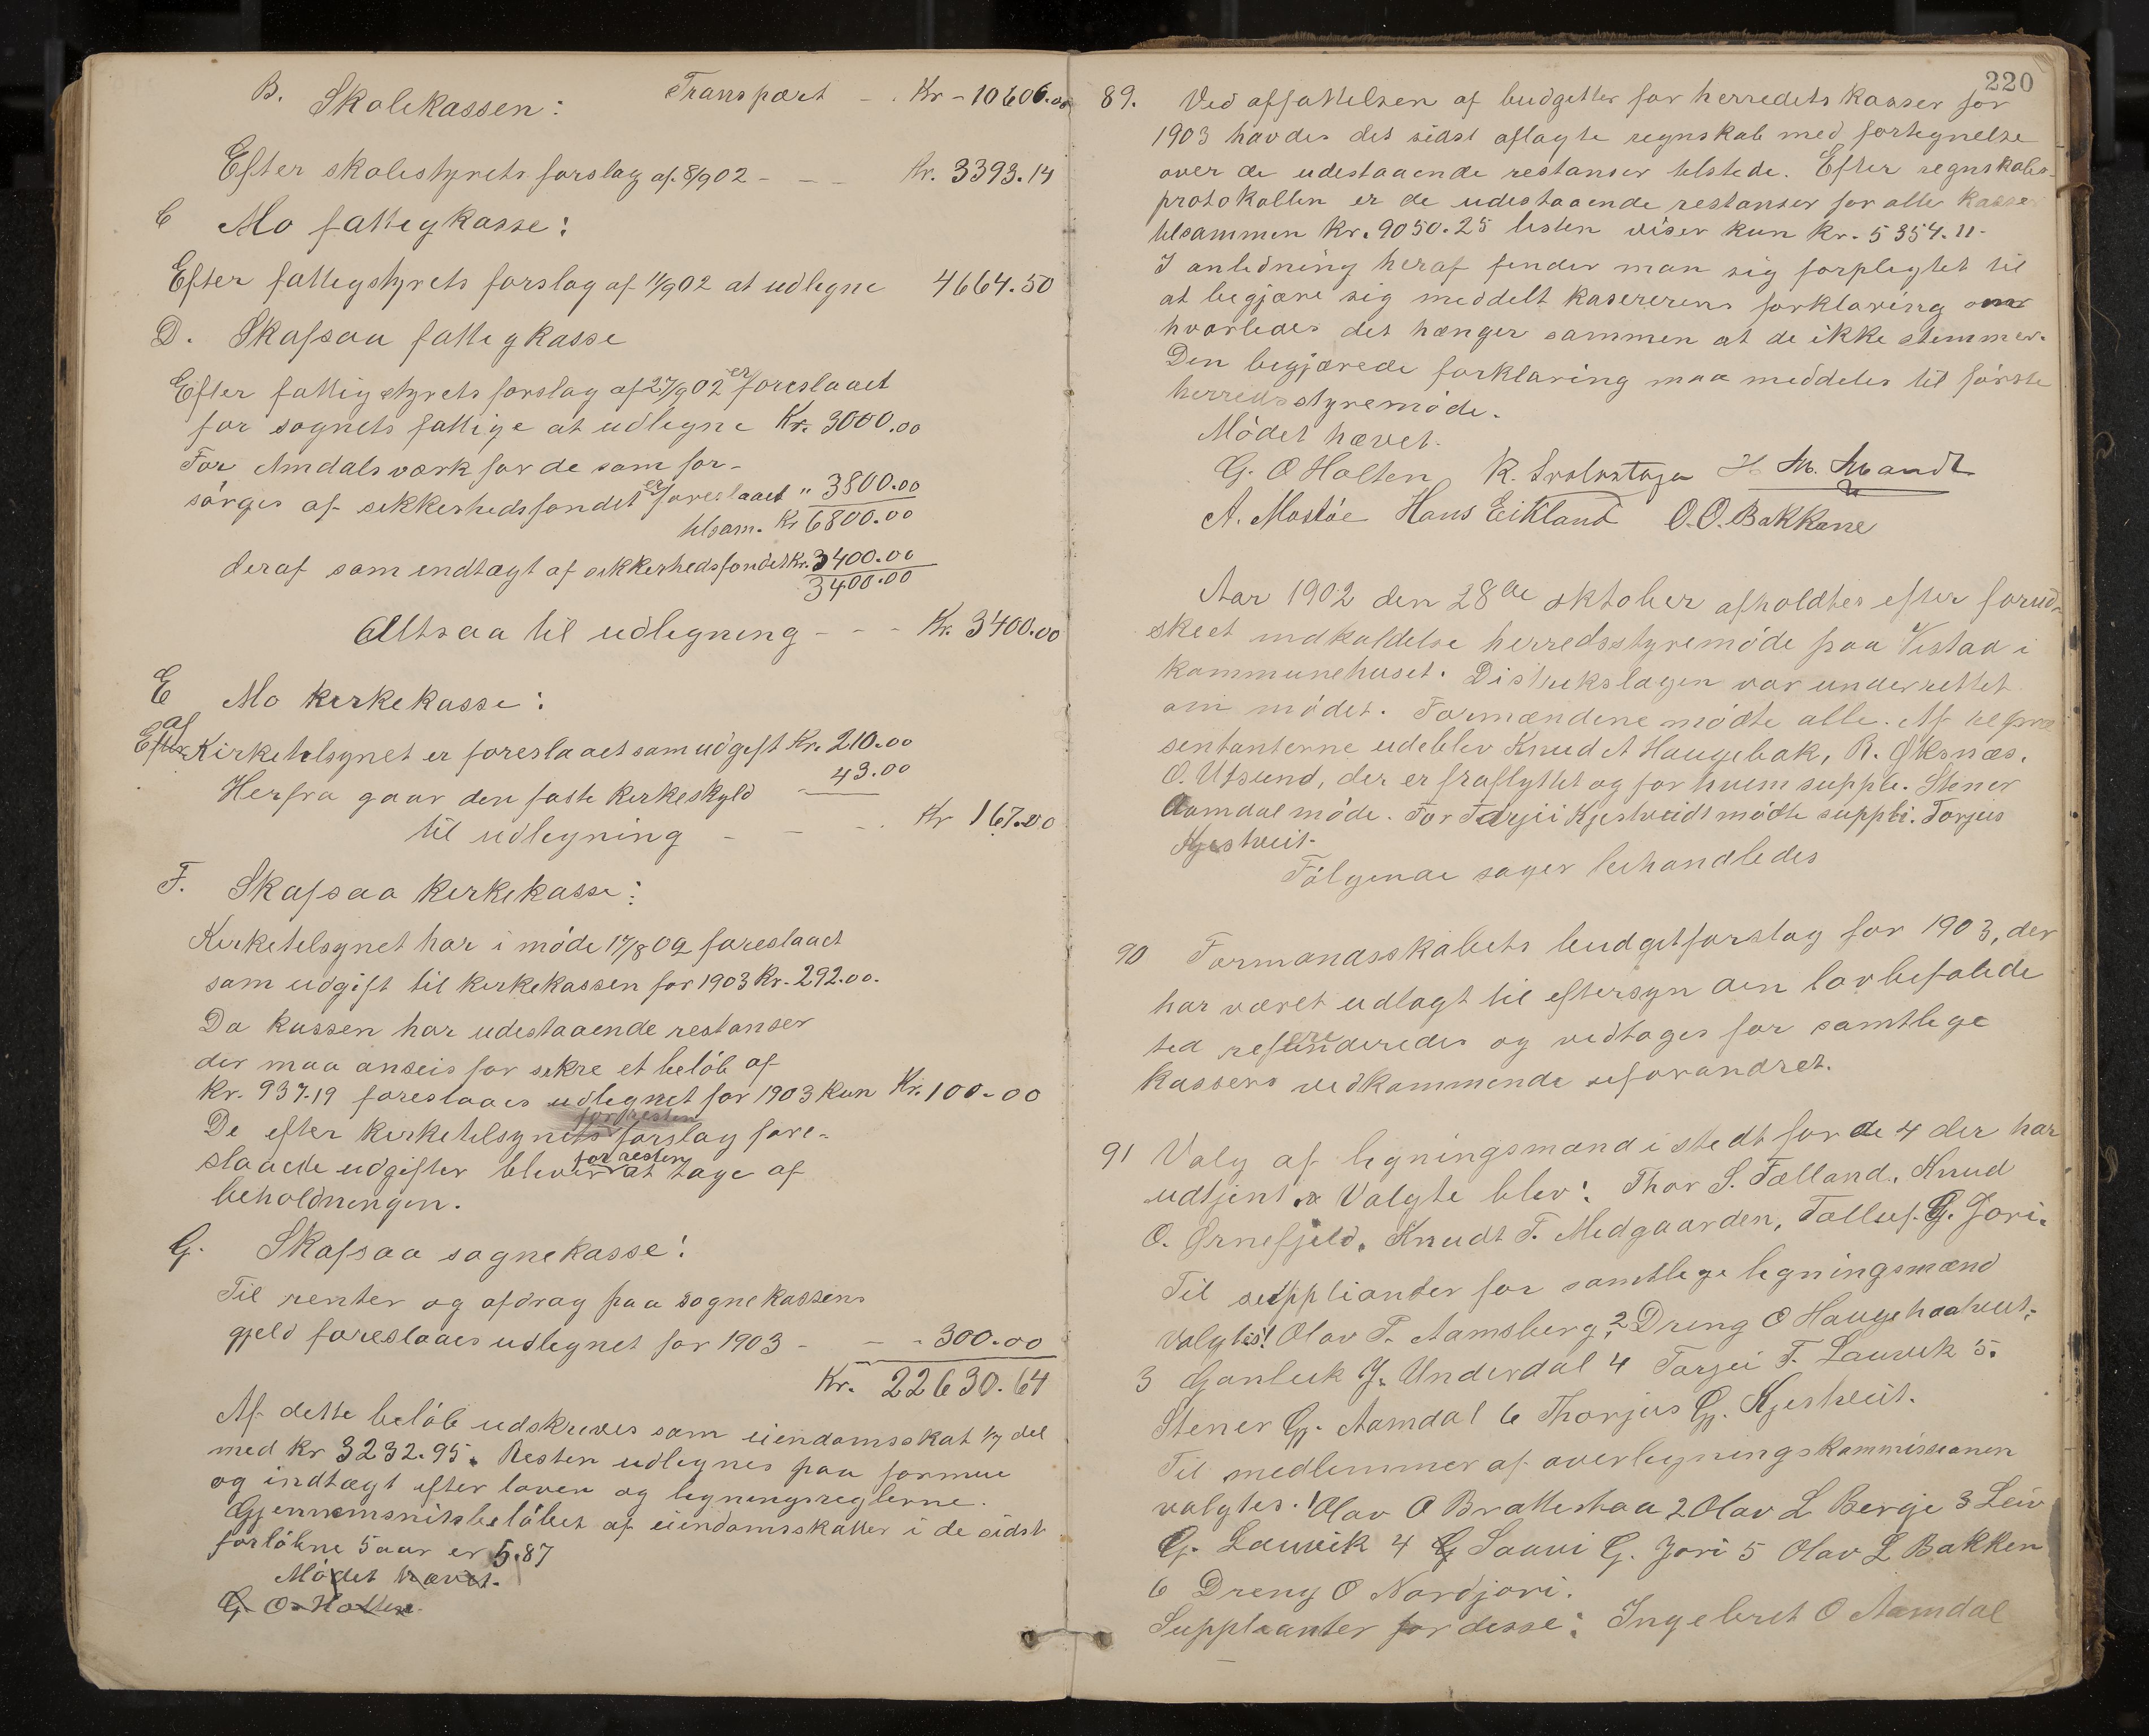 B. Skolekassen: Transport - . Kr - 10606.00
Efter skolestyrets forslag af 8/9 02 - - - Kr. 3393.14
C Mo fattigkasse:
Efter fattigstyrets forslag af 11/9 02 at udligne 4664.50
D. Skafsaa fattigkasse
Efter fattigstyrets forslag af 27/9 02 er foreslaaet
for sognets fattige at udligne Kr. 3000.00
For Amdals værk for de som for-
sörges af sikkerhedsfondet er foreslaaet " 3800.00
tilsam. Kr 6800.00
deraf som indtægt af sikkerhedsfondet Kr. 3400.00
3400.00
Altsaa til udligning - - - Kr. 3400.00
E Mo kirkekasse:
Efter af Kirketilsynet er foreslaaet som udgift Kr. 210.00
Herfra gaar den faste kirkeskyld 43.00
til udligning - - - . Kr 167.00
F. Skafsaa kirkekasse:
Kirketilsynet har i möde 17/8 02 foreslaaet
som udgift til kirkekassen for 1903 Kr. 292.00.
Da kassen har udestaaende restanser
der maa anseis for sikre et belöb af
Kr. 937.19 foreslaaes udlignet for 1903 kun Kr. 100.00
for resten
De efter kirketilsynets forslag fore-
slaaede udgifter bliver for resten at tage af
beholdningen.
G. Skafsaa sognekasse!
Til renter og afdrag paa sognekassens
gjeld foreslaaes udlignet for 1903 - - - 300.00
Kr. 22630.64
Af dette belöb udskrives som eiendomsskat 1/7 del
med Kr 3232.95. Resten udlignes paa formue
og indtægt efter loven og ligningsreglerne.
Gjennemsnitsbelöbet af eiendomsskatter i de sidst
forlöbne 5 aar er 5.87
Mödet hævet.
G. O. Holten
220
89. Ved affattelsen af budgetter for herredets kasser for
1903 havdes det sidst aflagte regnskab med fortegnelse
over de udestaaende restanser tilstede. Efter regnskabs-
protokollen er de udestaaende restanser for alle kasser
tilsammen Kr. 9050.25 listen viser kun Kr. 5354.11-
I anledning heraf finder man sig forpligtet til
at begjære sig meddelt kasererens forklaring om
hvorledes det hænger sammen at de ikke stemmer.
Den begjærede forklaring maa meddeles til förste
herredsstyremöde.
Mödet hævet.
G. O Holten K. H. M. Mandt
A. Mostöe Hans Eikland O. O. Bakkane
Aar 1902 den 28de oktober afholdtes efter forud-
skeet indkaldelse herredsstyremöde paa Vistaa i
kommunehuset. Distrikslægen var underrettet
om mödet. Formændene mödte alle. Af repræ
sentanterne udeblev Knud A Haugebak, R. Øksnæs,
O. Utsund, der er fraflyttet og for hvem supple. Stener
Aamdal möde. For Tarjei Kjestveidt mödte suppli. Torjus
Kjestveit.
Fölgende sager behandledes
90 Formandsskabets budgetforslag for 1903, der
har været udlagt til eftersyn den lovbefalede
tid refereredes og vedtages for samtlige
kassers vedkommende uforandret.
91 Valg af ligningsmænd i stedt for de 4 der har
udtjent. Valgte blev: Thor S. Fælland, Knud
O. Ørnefjeld, Knudt T. Midgaarden, Tollef. G. Jori.
Til suppliander for samtlige ligningsmænd
valgtes! Olav T. Aamsberg, 2 Dreng O Haugehaatveit,
3 Gonleik J. Underdal 4 Tarjei T. Lauvik 5.
Stener G. Aamdal 6 Thorjus G. Kjestveit.
Til medlemmer af overligningskommissionen
valgtes. 1 Olav O Brattestaa 2 Olav L Berge 3 Leiv
G. Lauvik 4 G Saavi G. Jori 5 Olav L Bakken
6 Dreng O Nordjori.
Supplianter for disse: Ingebret O Aamdal